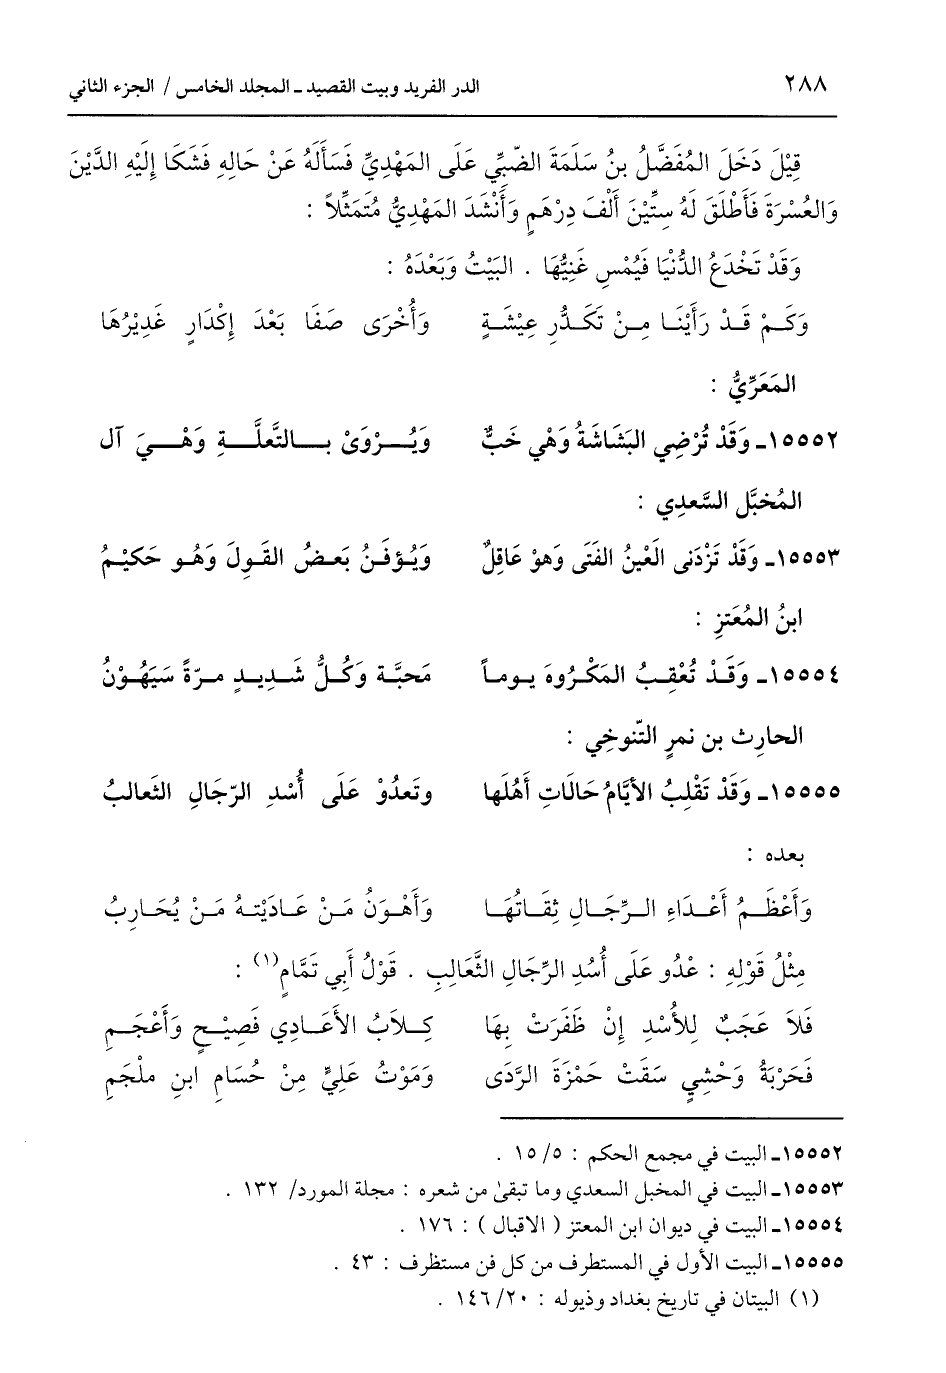 ٢٨٨ الدر الفريد وبيت القصيد ـ المجلد الخامس / الجزء الثاني
قِيْلَ دَخَلَ المُفَضَّلُ بنُ سَلَمَةَ الضّبِّي عَلَى المَهْدِيِّ فَسَأَلَهُ عَنْ حَالِهِ فَشَكَا إِلَيْهِ الدَّيْنَ
وَالعُسْرَةَ فَأَطْلَقَ لَهُ سِتِّيْنَ أَلْفَ دِرْهَمٍ وَأَنْشَدَ المَهْدِيُّ مُتَمَثِّلاً :
وَقَدْ تَخْدَعُ الدُّنْيَا فَيُمْسِ غَنِيُّهَا . البَيْتُ وَبَعْدَهُ :
وَكَمْ قَدْ رَأَيْنَا مِنْ تَكَدُّرِ عِيْشَةٍ وَأُخْرَى صَفَا بَعْدَ إِكْدَارٍ غَدِيْرُهَا
المَعَرِّيُّ :
١٥٥٥٢ـ وَقَدْ تُرْضِي البَشَاشَةُ وَهْي خَبٌّ وَيُرْوَىْ بِالتَّعلَّةِ وَهْيَ آل
المُخبَّل السَّعدِي :
١٥٥٥٣ـ وَقَدْ تَزْدَنى العَينُ الفَتَى وَهوْ عَاقِلٌ وَيُؤفَنُ بَعضُ القَولَ وَهُو حَكيْمُ
ابنُ المُعَتزِ :
١٥٥٥٤ـ وَقَدْ تُعْقِبُ المَكْرُوهَ يوماً مَحبَّة وَكُلُّ شَديدٍ مرّةً سَيَهُوْنُ
الحارِث بن نمرٍ التّنوخِي :
١٥٥٥٥ـ وَقَدْ تَقْلِبُ الأيَّامُ حَالَاتِ أَهْلَها وتَعدُوْ عَلَى أُسْدِ الرّجَالِ الثَعالبُ
بعده :
وَأَعْظَمُ أَعْدَاءِ الرِّجَالِ ثِقَاتُهَا وَأَهْوَنُ مَنْ عَادَيْتهُ مَنْ يُحَارِبُ
مِثْلُ قَوْلِهِ : عْدُو عَلَى أُسُدِ الرِّجَالِ الثَّعَالِبِ . قَوْلُ أَبِي تَمَّامٍ(١) :
فَلاَ عَجَبٌ لِلأُسْدِ إِنْ ظَفَرَتْ بِهَا كِلاَبُ الأَعَادِي فَصِيْحٍ وَأَعْجَمِ
فَحَرْبَةُ وَحْشِيٍ سَقَتْ حَمْزَةَ الرَّدَى وَمَوْتُ عَلِيٍّ مِنْ حُسَامِ ابنِ ملْجَمِ
١٥٥٥٢ـ البيت في مجمع الحكم : ٥/ ١٥ .
١٥٥٥٣ـ البيت في المخبل السعدي وما تبقىٰ من شعره : مجلة المورد/ ١٣٢ .
١٥٥٥٤ـ البيت في ديوان ابن المعتز ( الاقبال ) : ١٧٦ .
١٥٥٥٥ـ البيت الأول في المستطرف من كل فن مستظرف : ٤٣ .
(١) البيتان في تاريخ بغداد وذيوله : ٢٠/ ١٤٦ .